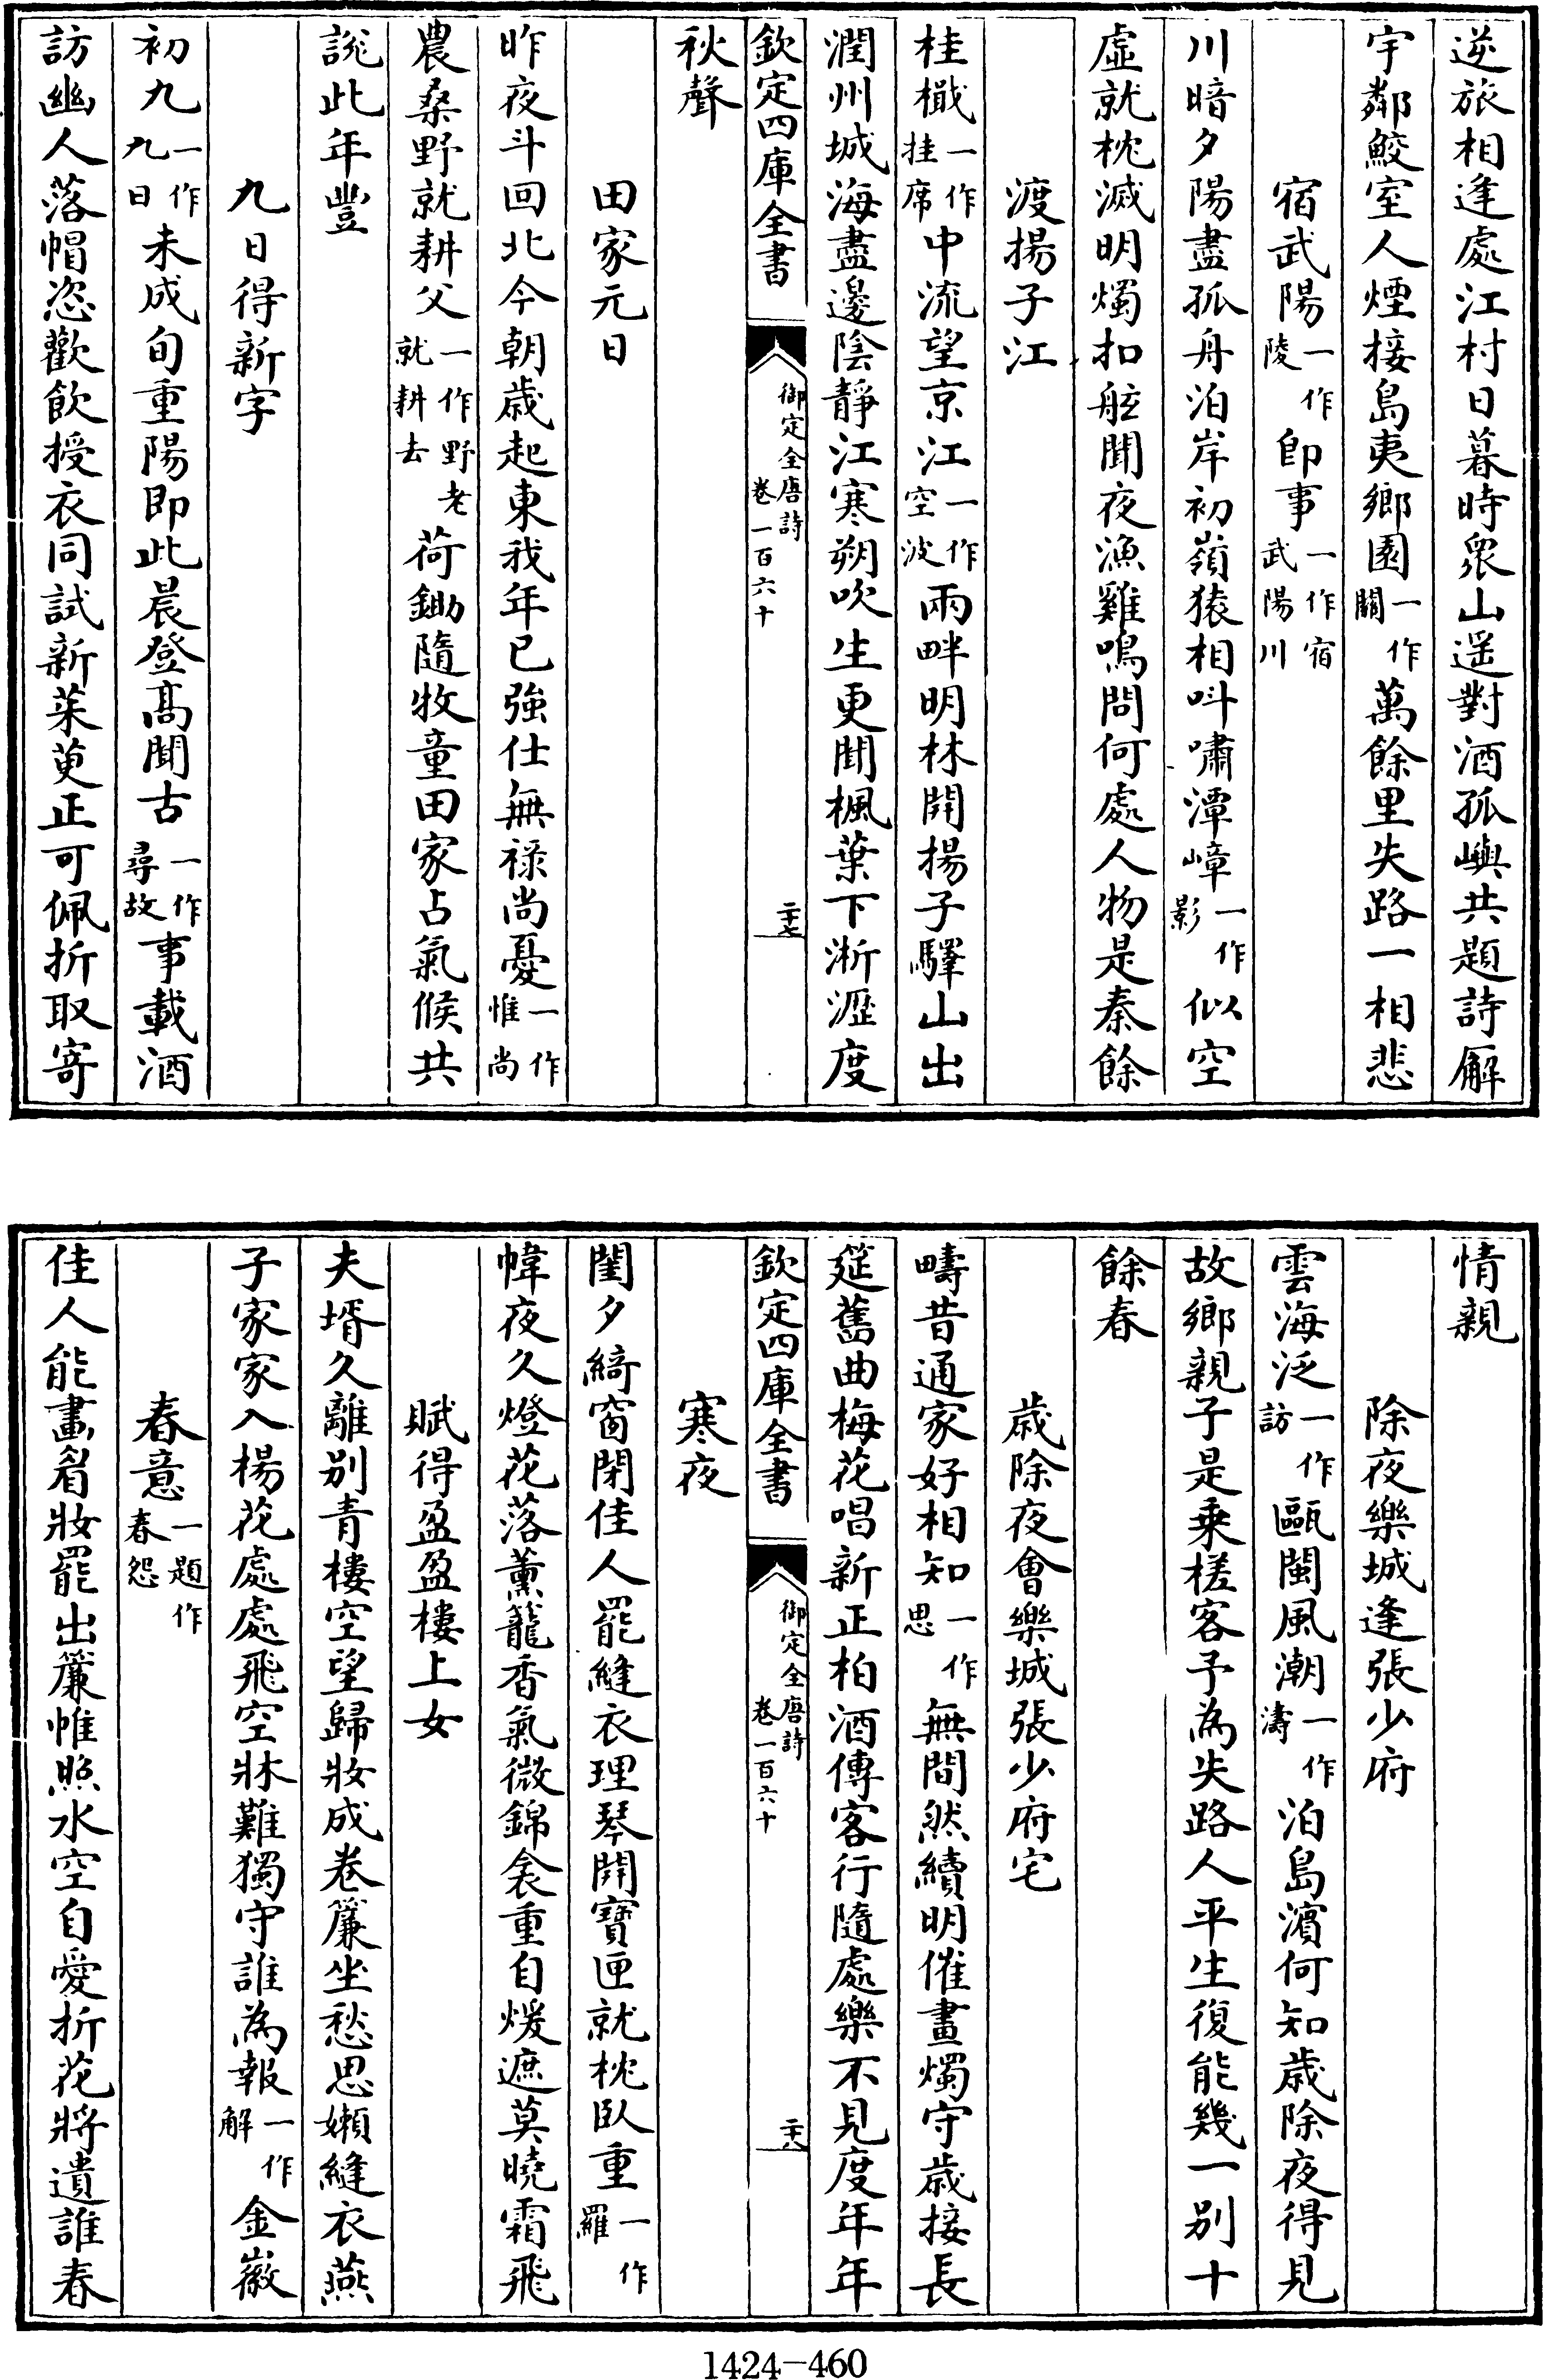 逆旅相逢處江村日暮時衆山遥對酒孤嶼共題詩廨
宇鄰鮫室人煙接島夷鄉園一作關萬餘里失路一相悲
宿武陽一作陵即事一作宿武陽川
川暗夕陽盡孤舟泊岸初嶺猿相叫嘯潭嶂一作影似空
虛就枕滅明燭扣舷聞夜漁雞鳴問何處人物是秦餘
渡揚子江
桂檝一作挂席中流望京江一作空波兩畔明林開揚子驛山出
潤州城海盡邊陰靜江寒朔吹生更聞楓葉下淅瀝度
欽定四庫全書 御定全唐詩卷一百六十 二十七
秋聲
田家元日
昨夜斗回北今朝歲起東我年已強仕無祿尚憂一作惟尚
農桑野就耕父一作野老就耕去荷鋤隨牧童田家占氣候共
說此年豐
九日得新字
初九一作九日未成旬重陽即此晨登高聞古一作尋故事載酒
訪幽人落帽恣歡飲授衣同試新茱萸正可佩折取寄
情親
除夜樂城逢張少府
雲海泛一作訪甌閩風潮一作濤泊島濱何知歲除夜得見
故鄉親子是乘槎客予為失路人平生復能幾一别十
餘春
歲除夜會樂城張少府宅
疇昔通家好相知一作思無間然續明催畫燭守歲接長
筵舊曲梅花唱新正柏酒傳客行隨處樂不見度年年
欽定四庫全書 御定全唐詩卷一百六十 二十八
寒夜
閨夕綺窗閉佳人罷縫衣理琴開寶匣就枕臥重一作羅
幃夜久燈花落薰籠香氣微錦衾重自煖遮莫曉霜飛
賦得盈盈樓上女
夫壻久離别青樓空望歸妝成卷簾坐愁思嬾縫衣燕
子家家入楊花處處飛空牀難獨守誰為報一作解金徽
春意一題作春怨
佳人能畫眉妝罷出簾帷照水空自愛折花將遺誰春
1424-460